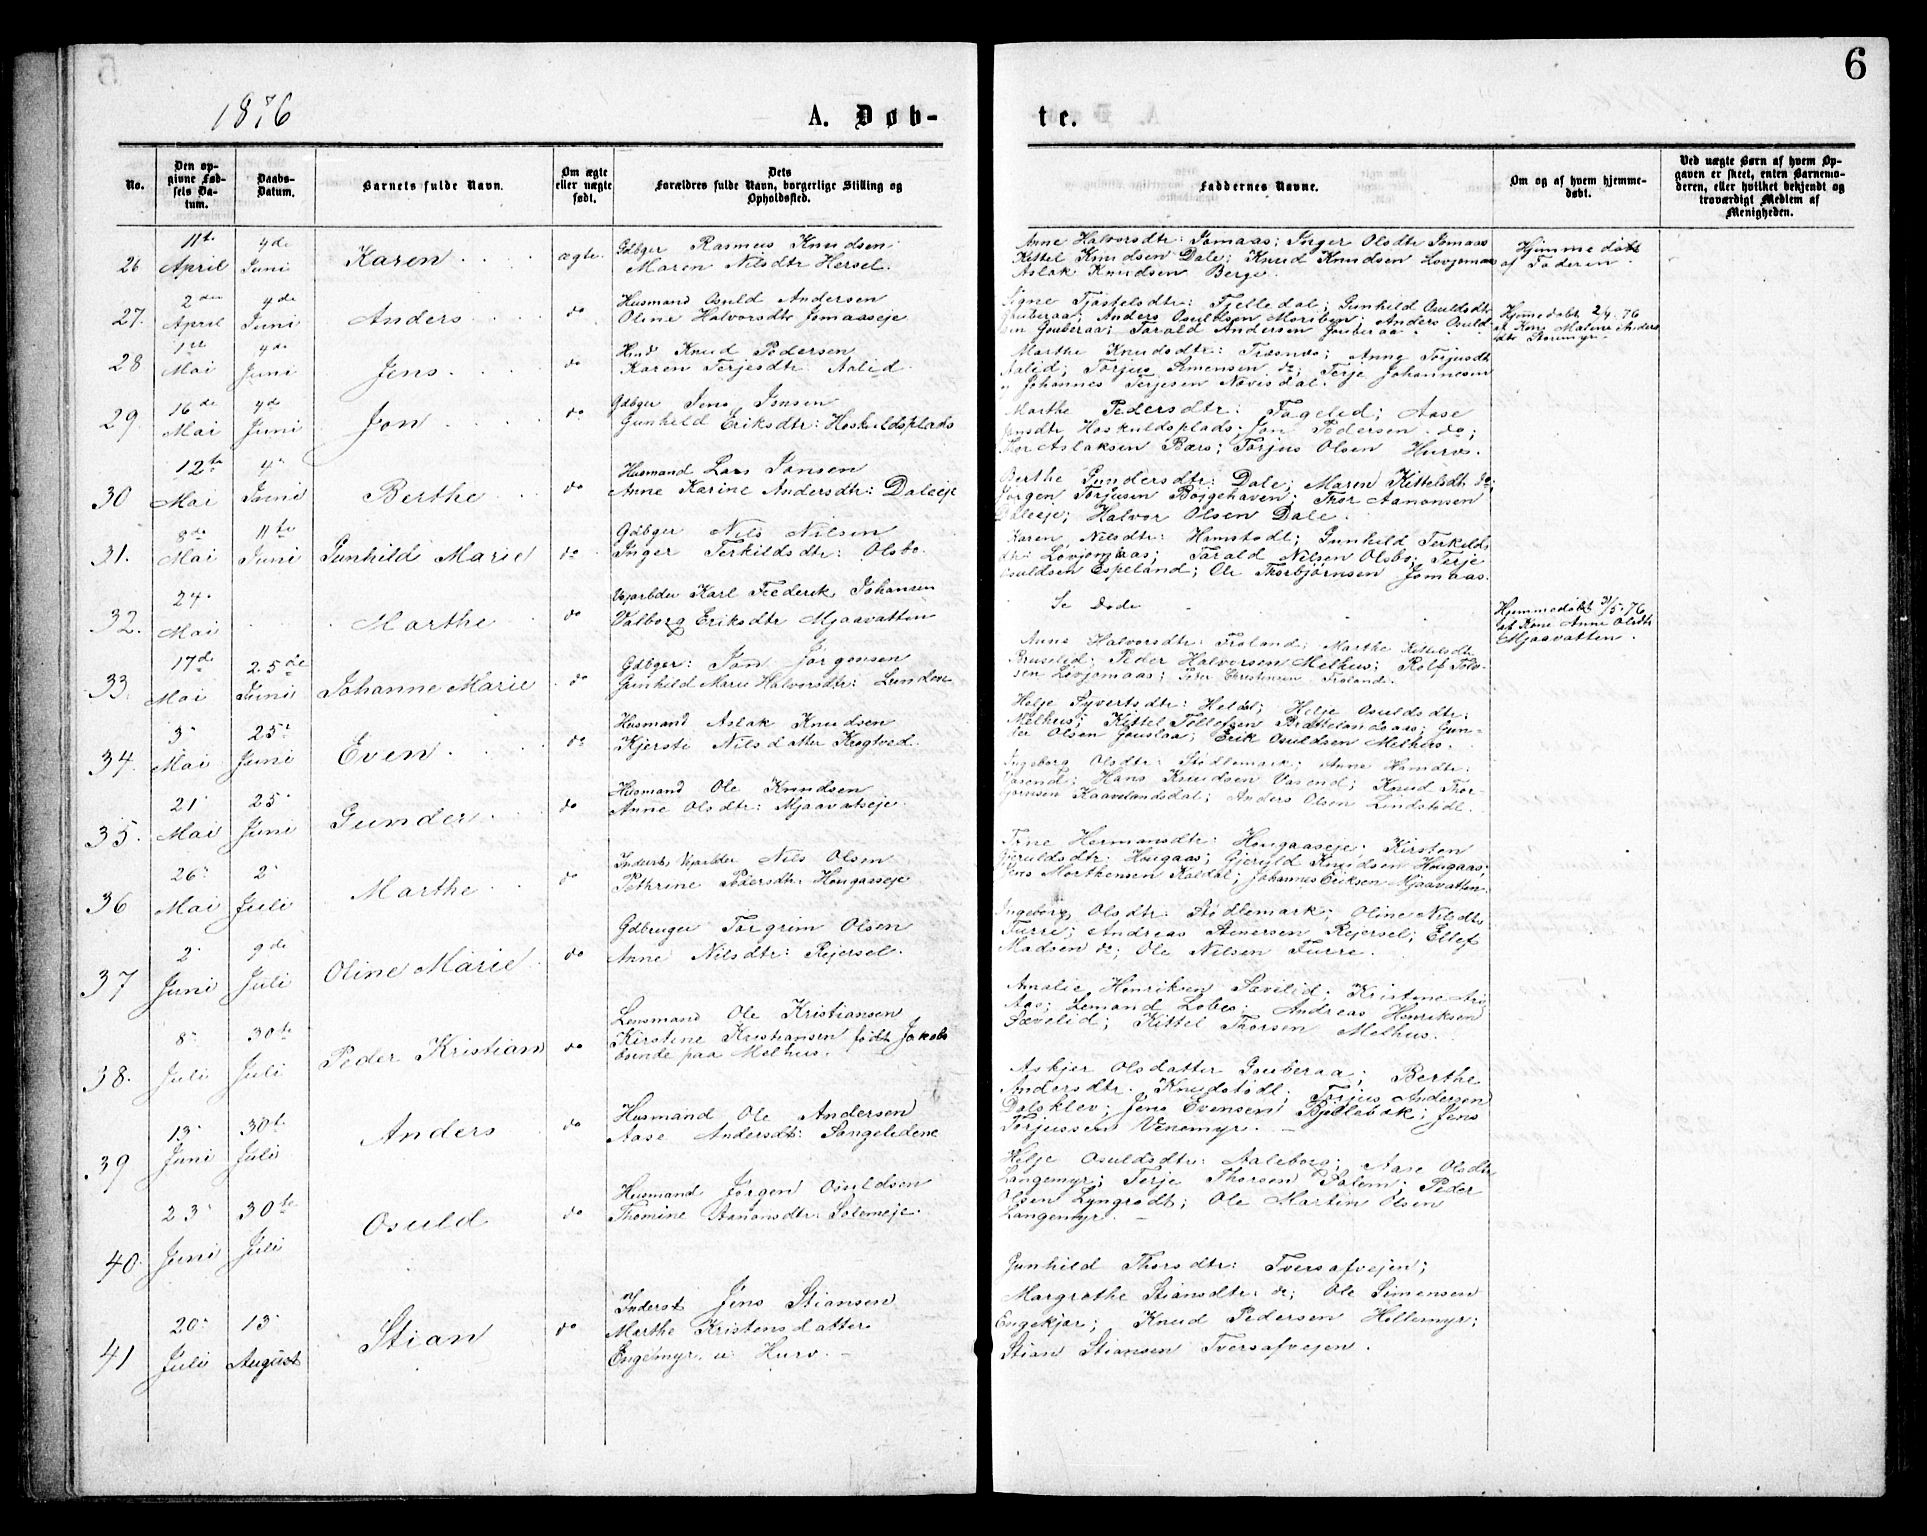 6
1876
A. Døb-
te.
No.
Den op-
givne Fød-
sels Da-
tum.
Daabs-
Datum.
Barnets fulde Navn.
Om ægte
eller uægte
født.
Dets
Forældres fulde Navn, borgerlige Stilling og
Opholdssted.
Faddernes Navne.
Om og af hvem hjemme-
døbt.
Ved uægte Børn af hvem Op-
gaven er skeet, enten Barnemo-
deren, eller hvilket bekjendt og
troværdigt Medlem af
Menigheden.
26 11te April 4de Juni Karen ægte.
Gdbger Rasmus Knudsen
Maren Nilsdtr Hersel.
Anne Halvorsdtr: Jomaas; Inger Olsdtr Jomaas
Kittel Knudsen Dale; Knud Knudsen Lovjomaas
Aslak Knudsen Berge.
Hjemmedøbt
af Faderen.
27. 2den April 4de Juni Anders do
Husmand Osuld Andersen
Oline Halvorsdtr Jomaaseje
Signe Tjøstelsdtr: Fjelledal; Gunhild Osuldsdtr
Gouberaa; Anders Osuldsen Moriben; Anders Osuld
sen Gouberaa; Tarald Andersen Gouberaa.
Hjemmedøbt 2/4 76
af Kone Malene Anders
dtr Stormyr.
28 1ste Mai 4de Juni Jens do
Hmd Knud Pedersen
Karen Terjesdtr: Aalid.
Marthe Knudsdtr: Træsnæs; Anne Torjusdtr
Aalid; Torjus Simensen do; Terje Johannesen
Johannes Terjesen Navisdal.
29. 16de Mai 4de Juni Jon do
Gdbger Jens Jensen
Gunhild Eriksdtr: Høskuldsplads
Marthe Pedersdtr: Fageled; Aase
Jonsdtr Høskuldsplads; Jon Pedersen do;
Thor Aslaksen Baas; Torjus Olsen Hurv.
30 12te Mai 4 Juni Berthe do
Husmand Lars Jonsen
Anne Karine Andersdtr: Daleeje
Berthe Gundersdtr: Dale; Maren Kittelsdtr do;
Jørgen Torjusen Bøjgehaven; Thor Aanonsen
Daleeje; Halvor Olsen Dale.
31. 8de Mai 11te Juni Gunhild Marie do
Gdbger Nils Nilsen
Inger Terkildsdtr: Olsbo.
Karen Nilsdtr: Hamstødt; Gunhild Terkilds
dtr: Lovjomaas; Tarald Nilsen Olsbo; Terje
Osuldsen Espeland; Ole Thorbjørnsen Jomaas.
32. 24. Mai Marthe do
Vejarbder Karl Frederik Johansen
Valborg Eriksdtr Mjaavatten
Se Døde
Hjemmedøbt 31/5 76
af Kone Anne Olsdtr
Mjaavatten.
33. 17de Mai 25de Juni Johanne Marie do
Gdbger: Jon Jørgensen
Gunhild Marie Halvorsdtr: Lunden
Anne Halvorsdtr: Froland; Marthe Kittelsdtr
Bruselid; Peder Halvorsen Melhus; Rolf Tols-
sen Lovjomaas; Peter Christensen Froland.
34. 3 Mai 25de Juni Even do
Husmand Aslak Knudsen
Kjersti Nilsdatter Krogtved.
Helje Syvertsdtr: Heldal; Helje Osuldsdtr:
Melhus; Kittel Tellefsen Brattelandsaas; Gun-
der Olsen Gouslaa; Erik Osuldsen Melhus.
35. 21 Mai 25 Juni Gunder do
Husmand Ole Knudsen
Anne Olsdtr: Mjaavatseje
Ingeborg Olsdtr: Stødlemark; Anne Hansdtr:
Vasend; Hans Knudsen Vasend; Knud Thor
bjørnsen Kaavelandsdal; Anders Olsen Lindstødl.
36 26 Mai 2 Juli Marthe do
Inderst Vejarbder Nils Olsen
Cathrine Pedersdtr: Hougaaseje.
Tone Hermansdtr: Hougaaseje; Kirsten
Gjeruldsdtr: Hougaas; Gjeruld Knudsen Hougaas;
Jens Morthensen Kaldal; Johannes Eriksen Mjaavatten.
37 2 Juni 9de Juli Oline Marie do
Gdbruger Torgrim Olsen
Anne Nilsdtr: Rejersel.
Ingeborg Olsdtr Stødlemark; Oline Nilsdtr
Furre; Andreas Stenersen Rejersel; Ellef
Madsen do; Ole Nilsen Furre.
38. 8 Juli 30te Juli Peder Kristian do
Lensmand Ole Kristiansen
Kirstine Kristiansen født Jakobs
boende paa Melhus.
Amalie Henriksen Sævelid; Kristene
Aas; Lemand Løbes; Andreas Henriksen
Sævelid; Kittel Thorsen Melhus.
39 13 Juni 30te Juli Anders do
Husmand Ole Andersen
Aase Andersdtr: Sangeledene
Asbjør Olsdatter Gouberaa; Berthe
Andersdtr. Knudstødl; Torjus Andersen
Dalsklev; Jens Evensen Bjellabæk; Jens
Torjussen Venemyr.
40. 23 Juni 30te Juli Osuld do
Husmand Jørgen Osuldsen
Thomine Aanonsdtr: Salemeje.
Helje Osuldsdtr: Aaleborg; Aase Olsdtr
Langemyr; Terje Thorsen Salem; Peder
Olsen Lyngrødt; Ole Martin Olsen
Langemyr.
41 20 Juli 13 August Stian do
Inderst Jens Stiansen
Marthe Kristensdatter
Engemyr u. Hurv.
Gunhild Thorsdtr: Tversafvejen;
Margrethe Stiansdtr: do; Ole Simensen
Engekjær; Knud Pedersen Hellemyr;
Stian Stiansen Tversafvejen.